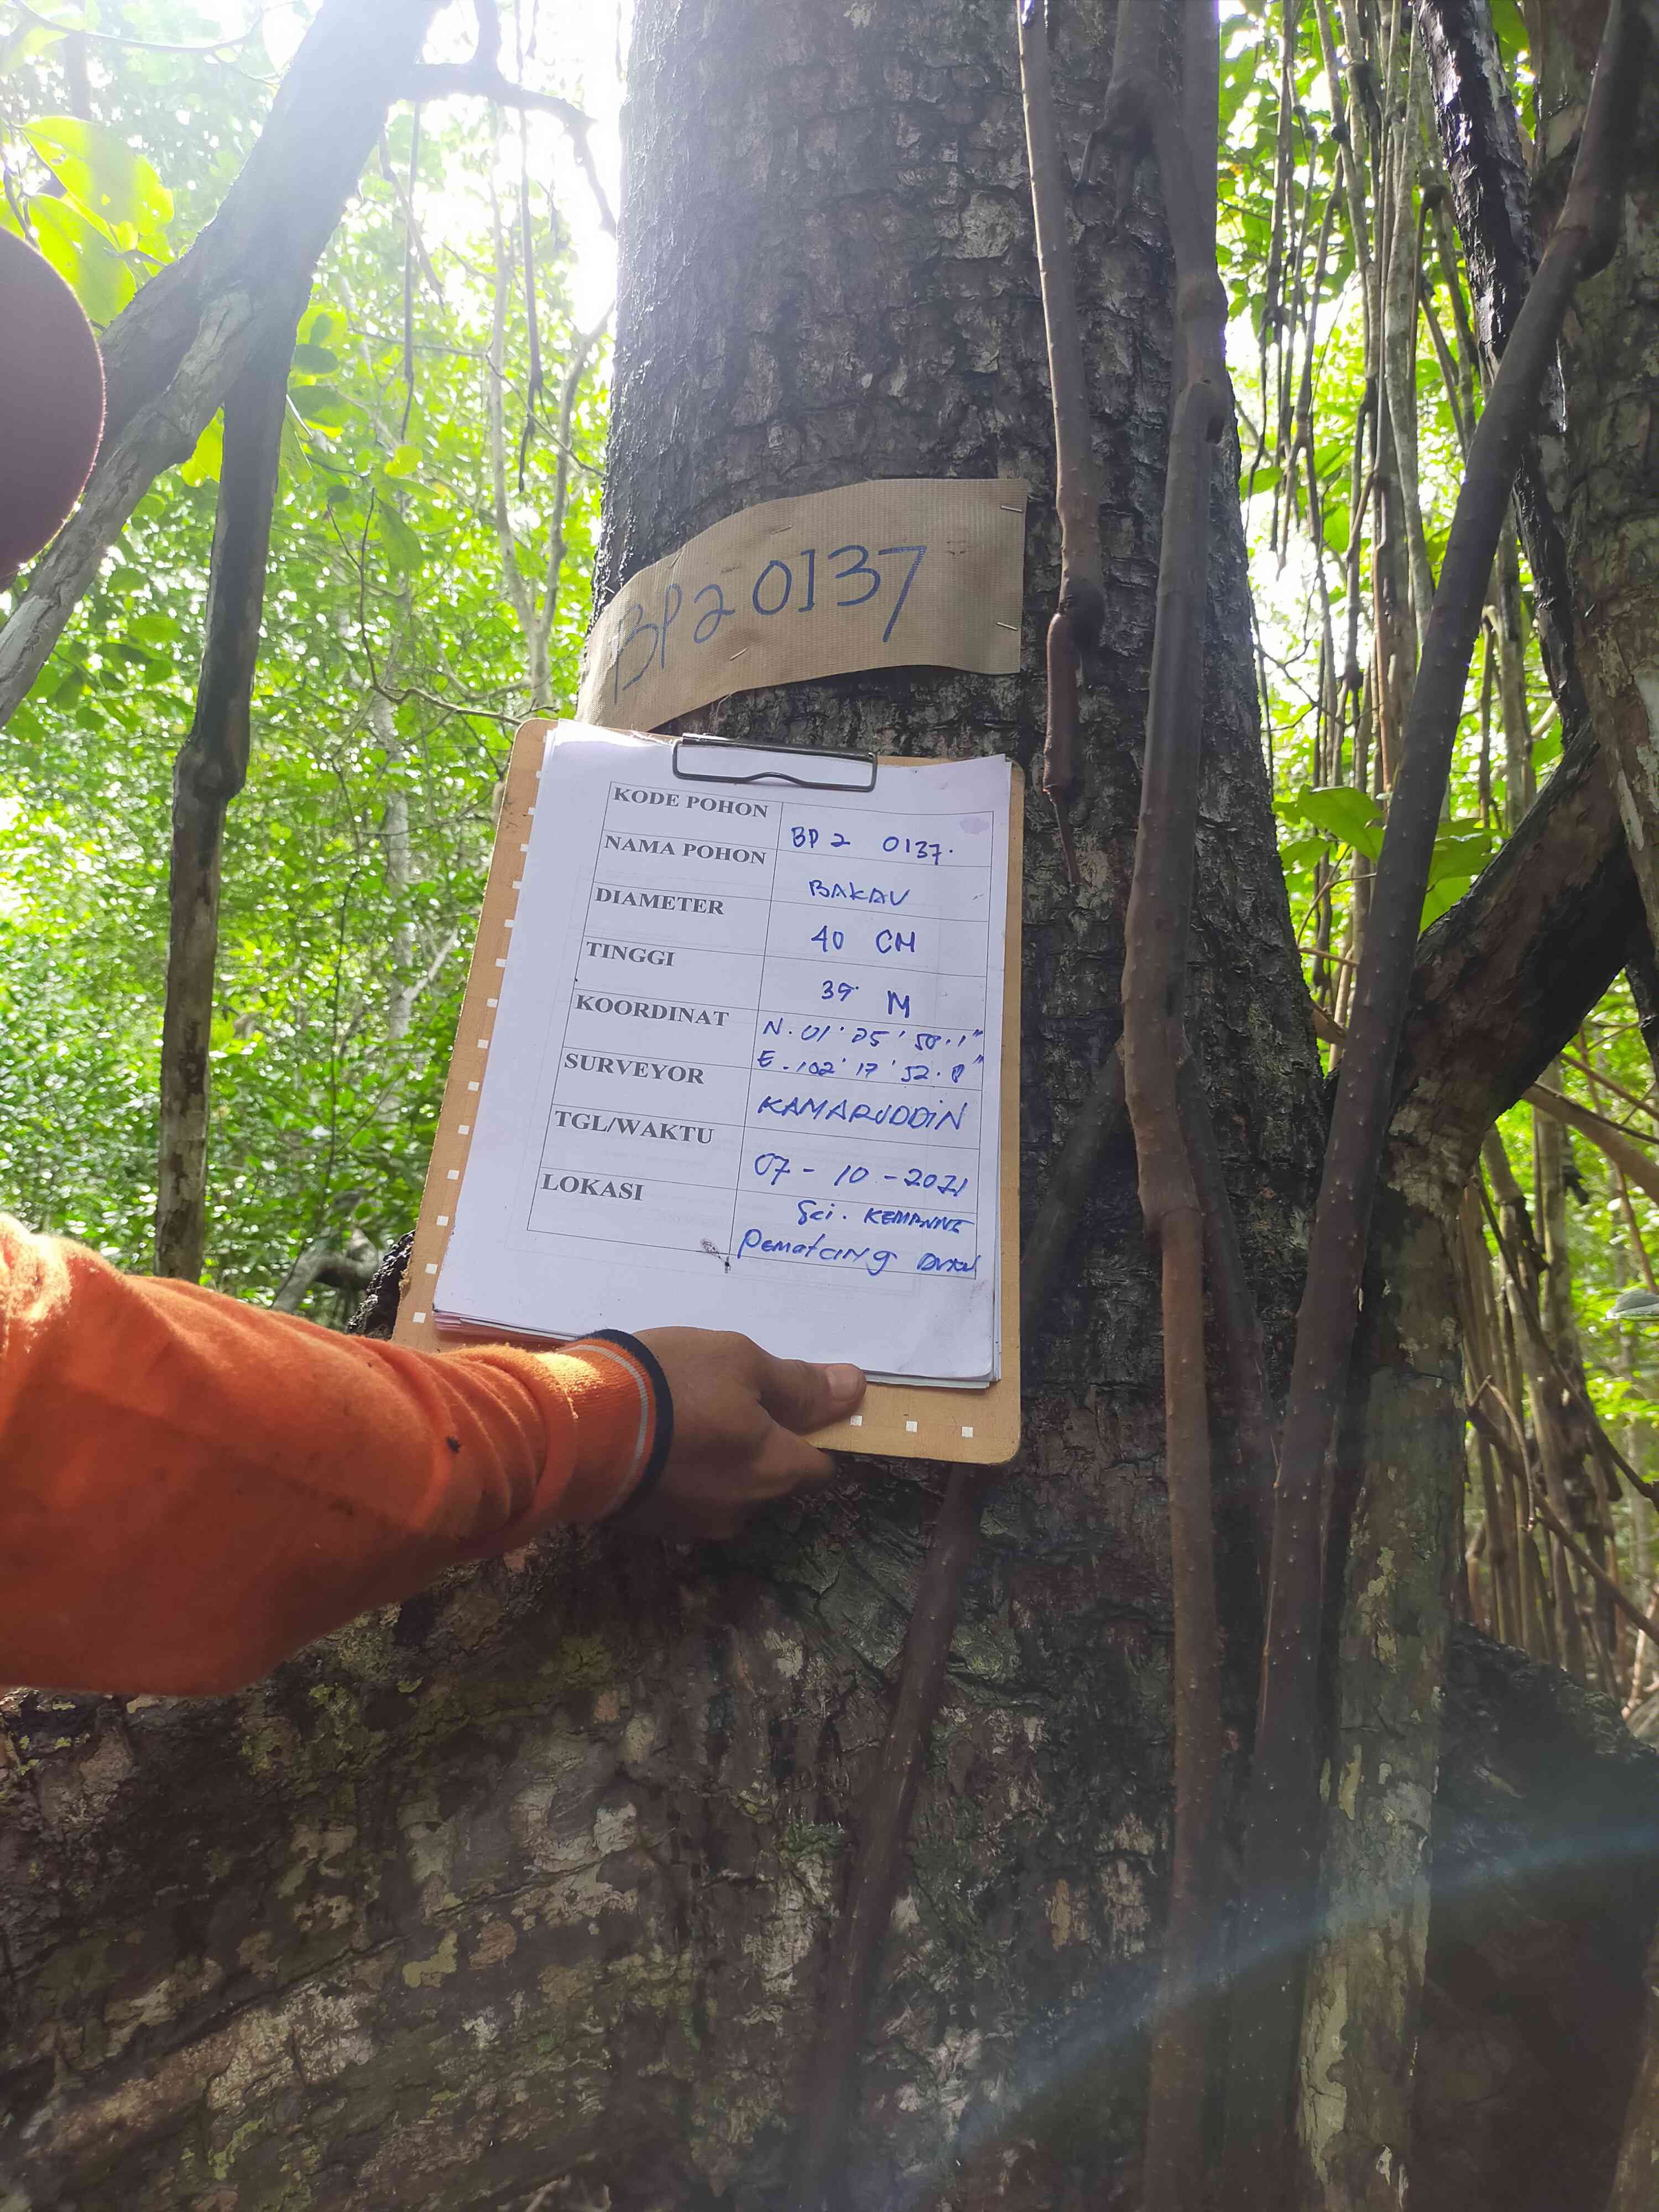 BP2 0137
KODE POHON
BP 2 0137.
NAMA POHON
BAKAU
DIAMETER
40 CM
TINGGI
39 M
KOORDINAT
N. 01' 25' 50.1"
E. 102' 17' 52.8"
SURVEYOR
KAMARUDDIN
TGL/WAKTU
07 - 10 - 2021
LOKASI
Sei.
Pematang Duku